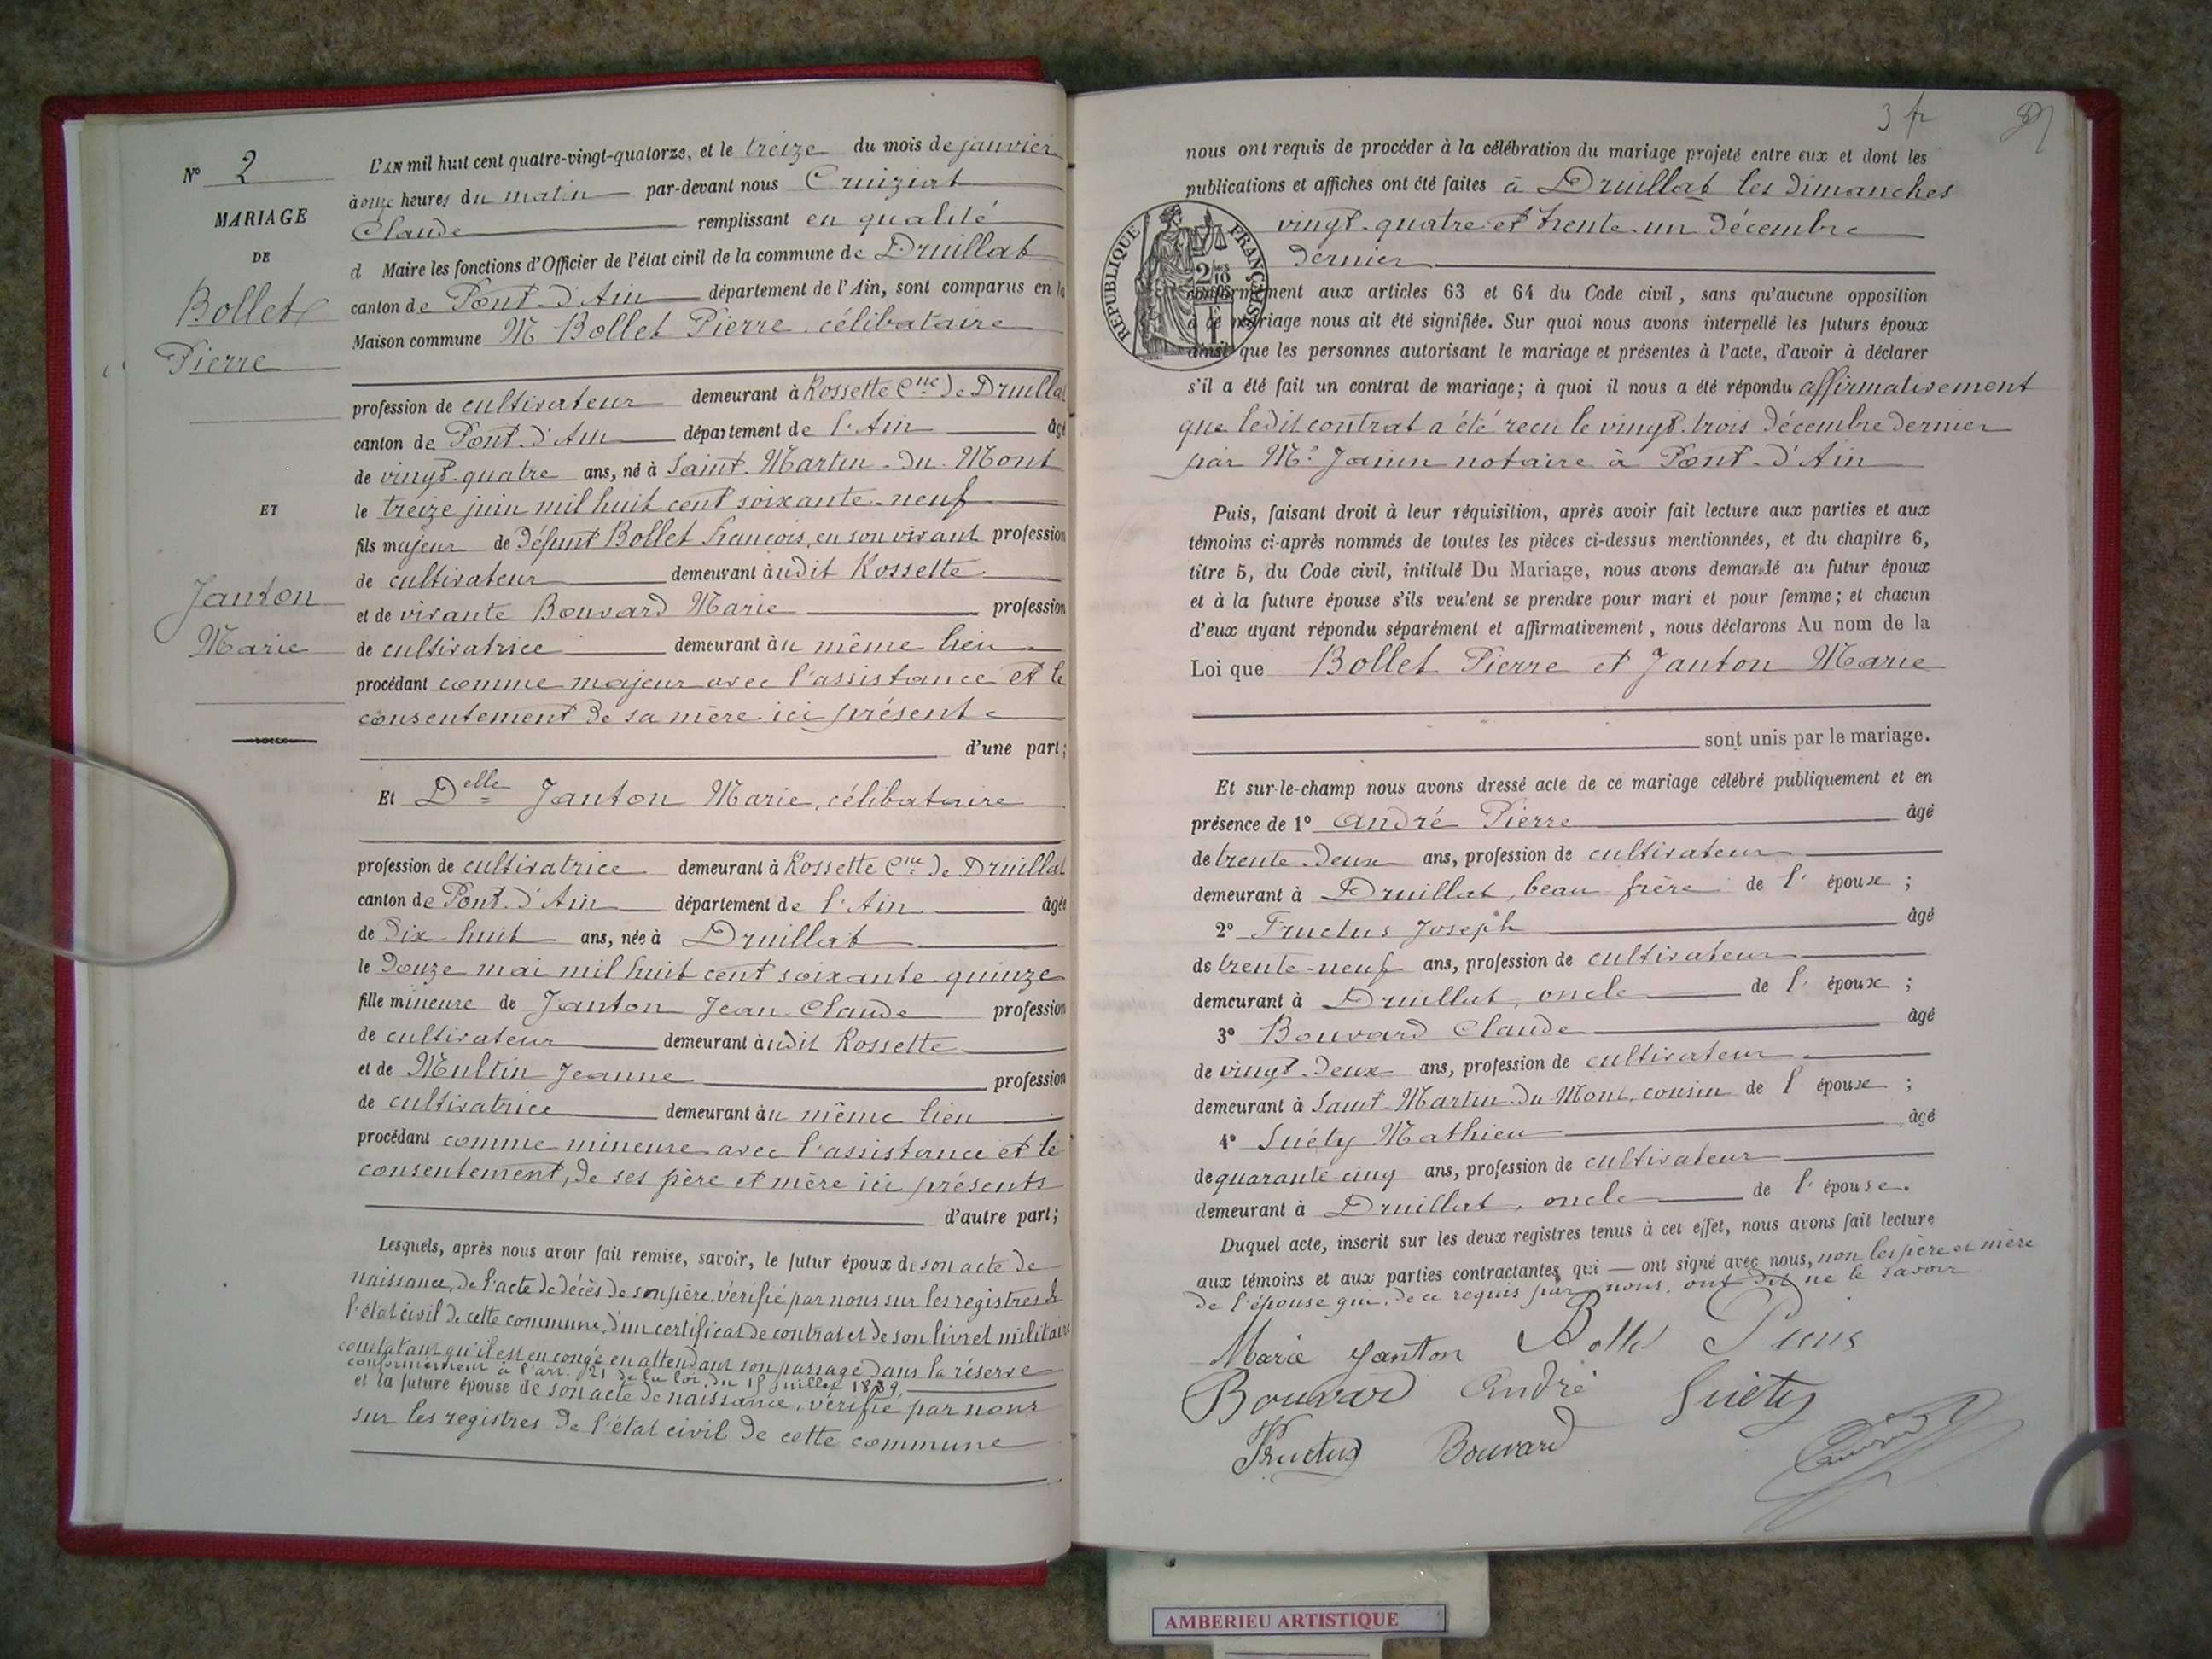 Nº 2
MARIAGE
DE
Bollet
Pierre
ET
Janton
Marie
L'AN mil huit cent quatre-vingt-quatorze, et le treize du mois de janvier
à onze heures du matin par-devant nous Cruiziat
Claude remplissant en qualité
d Maire les fonctions d'Officier de l'état civil de la commune de Druillat
canton de Pont-d'Ain département de l'Ain, sont comparus en la
Maison commune M Bollet Pierre, célibataire
profession de cultivateur demeurant à Rossette Cne de Druillat
canton de Pont-d'Ain département de l'Ain âgé
de vingt-quatre ans, né à Saint-Martin-du-Mont
le treize juin mil huit cent soixante-neuf
fils majeur de défunt Bollet François, en son vivant profession
de cultivateur demeurant audit Rossette
et de vivante Bouvard Marie profession
de cultivatrice demeurant au même lieu
procédant comme majeur avec l'assistance et le
consentement de sa mère ici présente
d'une part;
Et Delle Janton Marie, célibataire
profession de cultivatrice demeurant à Rossette Cne de Druillat
canton de Pont-d'Ain département de l'Ain âgée
de dix-huit ans, née à Druillat
le douze mai mil huit cent soixante-quinze
fille mineure de Janton Jean-Claude profession
de cultivateur demeurant audit Rossette
et de Multin Jeanne profession
de cultivatrice demeurant au même lieu
procédant comme mineure avec l'assistance et le
consentement, de ses père et mère ici présents
d'autre part;
Lesquels, après nous avoir fait remise, savoir, le futur époux de son acte de
naissance, de l'acte de décès de son père, vérifié par nous sur les registres de
l'état civil de cette commune, d'un certificat de contrat et de son livret militaire
constatant qu'il est en congé en attendant son passage dans la réserve
conformément à l'art. 21 de la loi du 15 juillet 1889,
et la future épouse de son acte de naissance, vérifié par nous
sur les registres de l'état civil de cette commune
3 fr
nous ont requis de procéder à la célébration du mariage projeté entre eux et dont les
publications et affiches ont été faites à Druillat les dimanches
vingt-quatre et trente-un décembre
dernier
RÉPUBLIQUE FRANÇAISE
conformément aux articles 63 et 64 du Code civil, sans qu'aucune opposition
à ce mariage nous ait été signifiée. Sur quoi nous avons interpellé les futurs époux
ainsi que les personnes autorisant le mariage et présentes à l'acte, d'avoir à déclarer
s'il a été fait un contrat de mariage; à quoi il nous a été répondu affirmativement
que ledit contrat a été reçu le vingt-trois décembre dernier
par Me Janin notaire à Pont-d'Ain
Puis, faisant droit à leur réquisition, après avoir fait lecture aux parties et aux
témoins ci-après nommés de toutes les pièces ci-dessus mentionnées, et du chapitre 6,
titre 5, du Code civil, intitulé Du Mariage, nous avons demandé au futur époux
et à la future épouse s'ils veulent se prendre pour mari et pour femme; et chacun
d'eux ayant répondu séparément et affirmativement, nous déclarons Au nom de la
Loi que Bollet Pierre et Janton Marie
sont unis par le mariage.
Et sur-le-champ nous avons dressé acte de ce mariage célébré publiquement et en
présence de 1º André Pierre âgé
de trente-deux ans, profession de cultivateur
demeurant à Druillat, beau frère de l' époux ;
2º Fructus Joseph âgé
de trente-neuf ans, profession de cultivateur
demeurant à Druillat, oncle de l' époux ;
3º Bouvard Claude âgé
de vingt-deux ans, profession de cultivateur
demeurant à Saint-Martin-du-Mont, cousin de l' époux ;
4º Suéty Mathieu âgé
de quarante-cinq ans, profession de cultivateur
demeurant à Druillat, oncle de l' épouse.
Duquel acte, inscrit sur les deux registres tenus à cet effet, nous avons fait lecture
aux témoins et aux parties contractantes qui — ont signé avec nous, non les père et mère
de l'épouse qui, de ce requis par nous, ont dit ne le savoir
Marie Janton Bollet Pierre
Bouvard André Suéty
Fructus Bouvard
AMBERIEU ARTISTIQUE